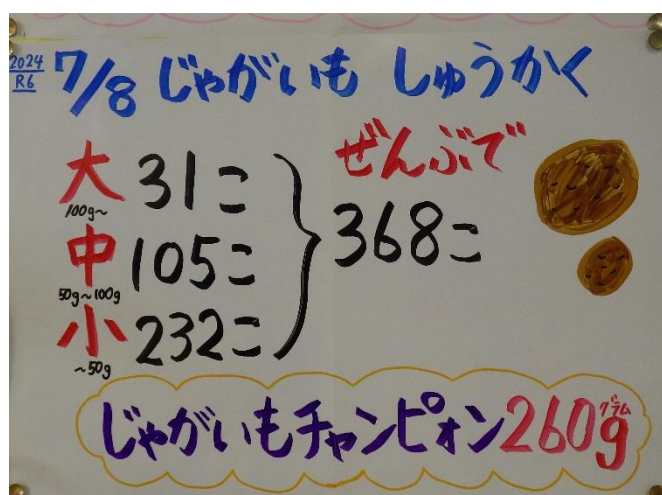 2024
R6
7/8 じゃがいも しゅうかく
大 31こ
100g~
中 105こ
50g~100g
小 232こ
~50g
ぜんぶで
368こ
じゃがいもチャンピォン260gグラム